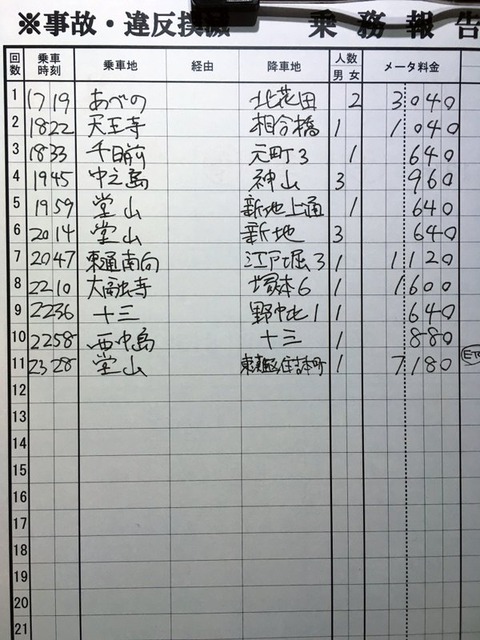 ※事故・違反撲滅 乗務報告
回数 乗車時刻 乗車地 経由 降車地 人数 男 女 メータ料金
1 17 19 あべの 北花田 2 3040
2 18 22 天王寺 相合橋 1 1040
3 18 33 千日前 元町3 1 640
4 19 45 中之島 神山 3 960
5 19 59 堂山 新地上通 1 640
6 20 14 堂山 新地 3 640
7 20 47 東通南向 江戸堀3 1 1120
8 22 10 太融寺 塚本6 1 1600
9 22 36 十三 野中北1 1 640
10 22 58 西中島 十三 1 880
11 23 28 堂山 住吉本町 1 7180 ETC
12
13
14
15
16
17
18
19
20
21